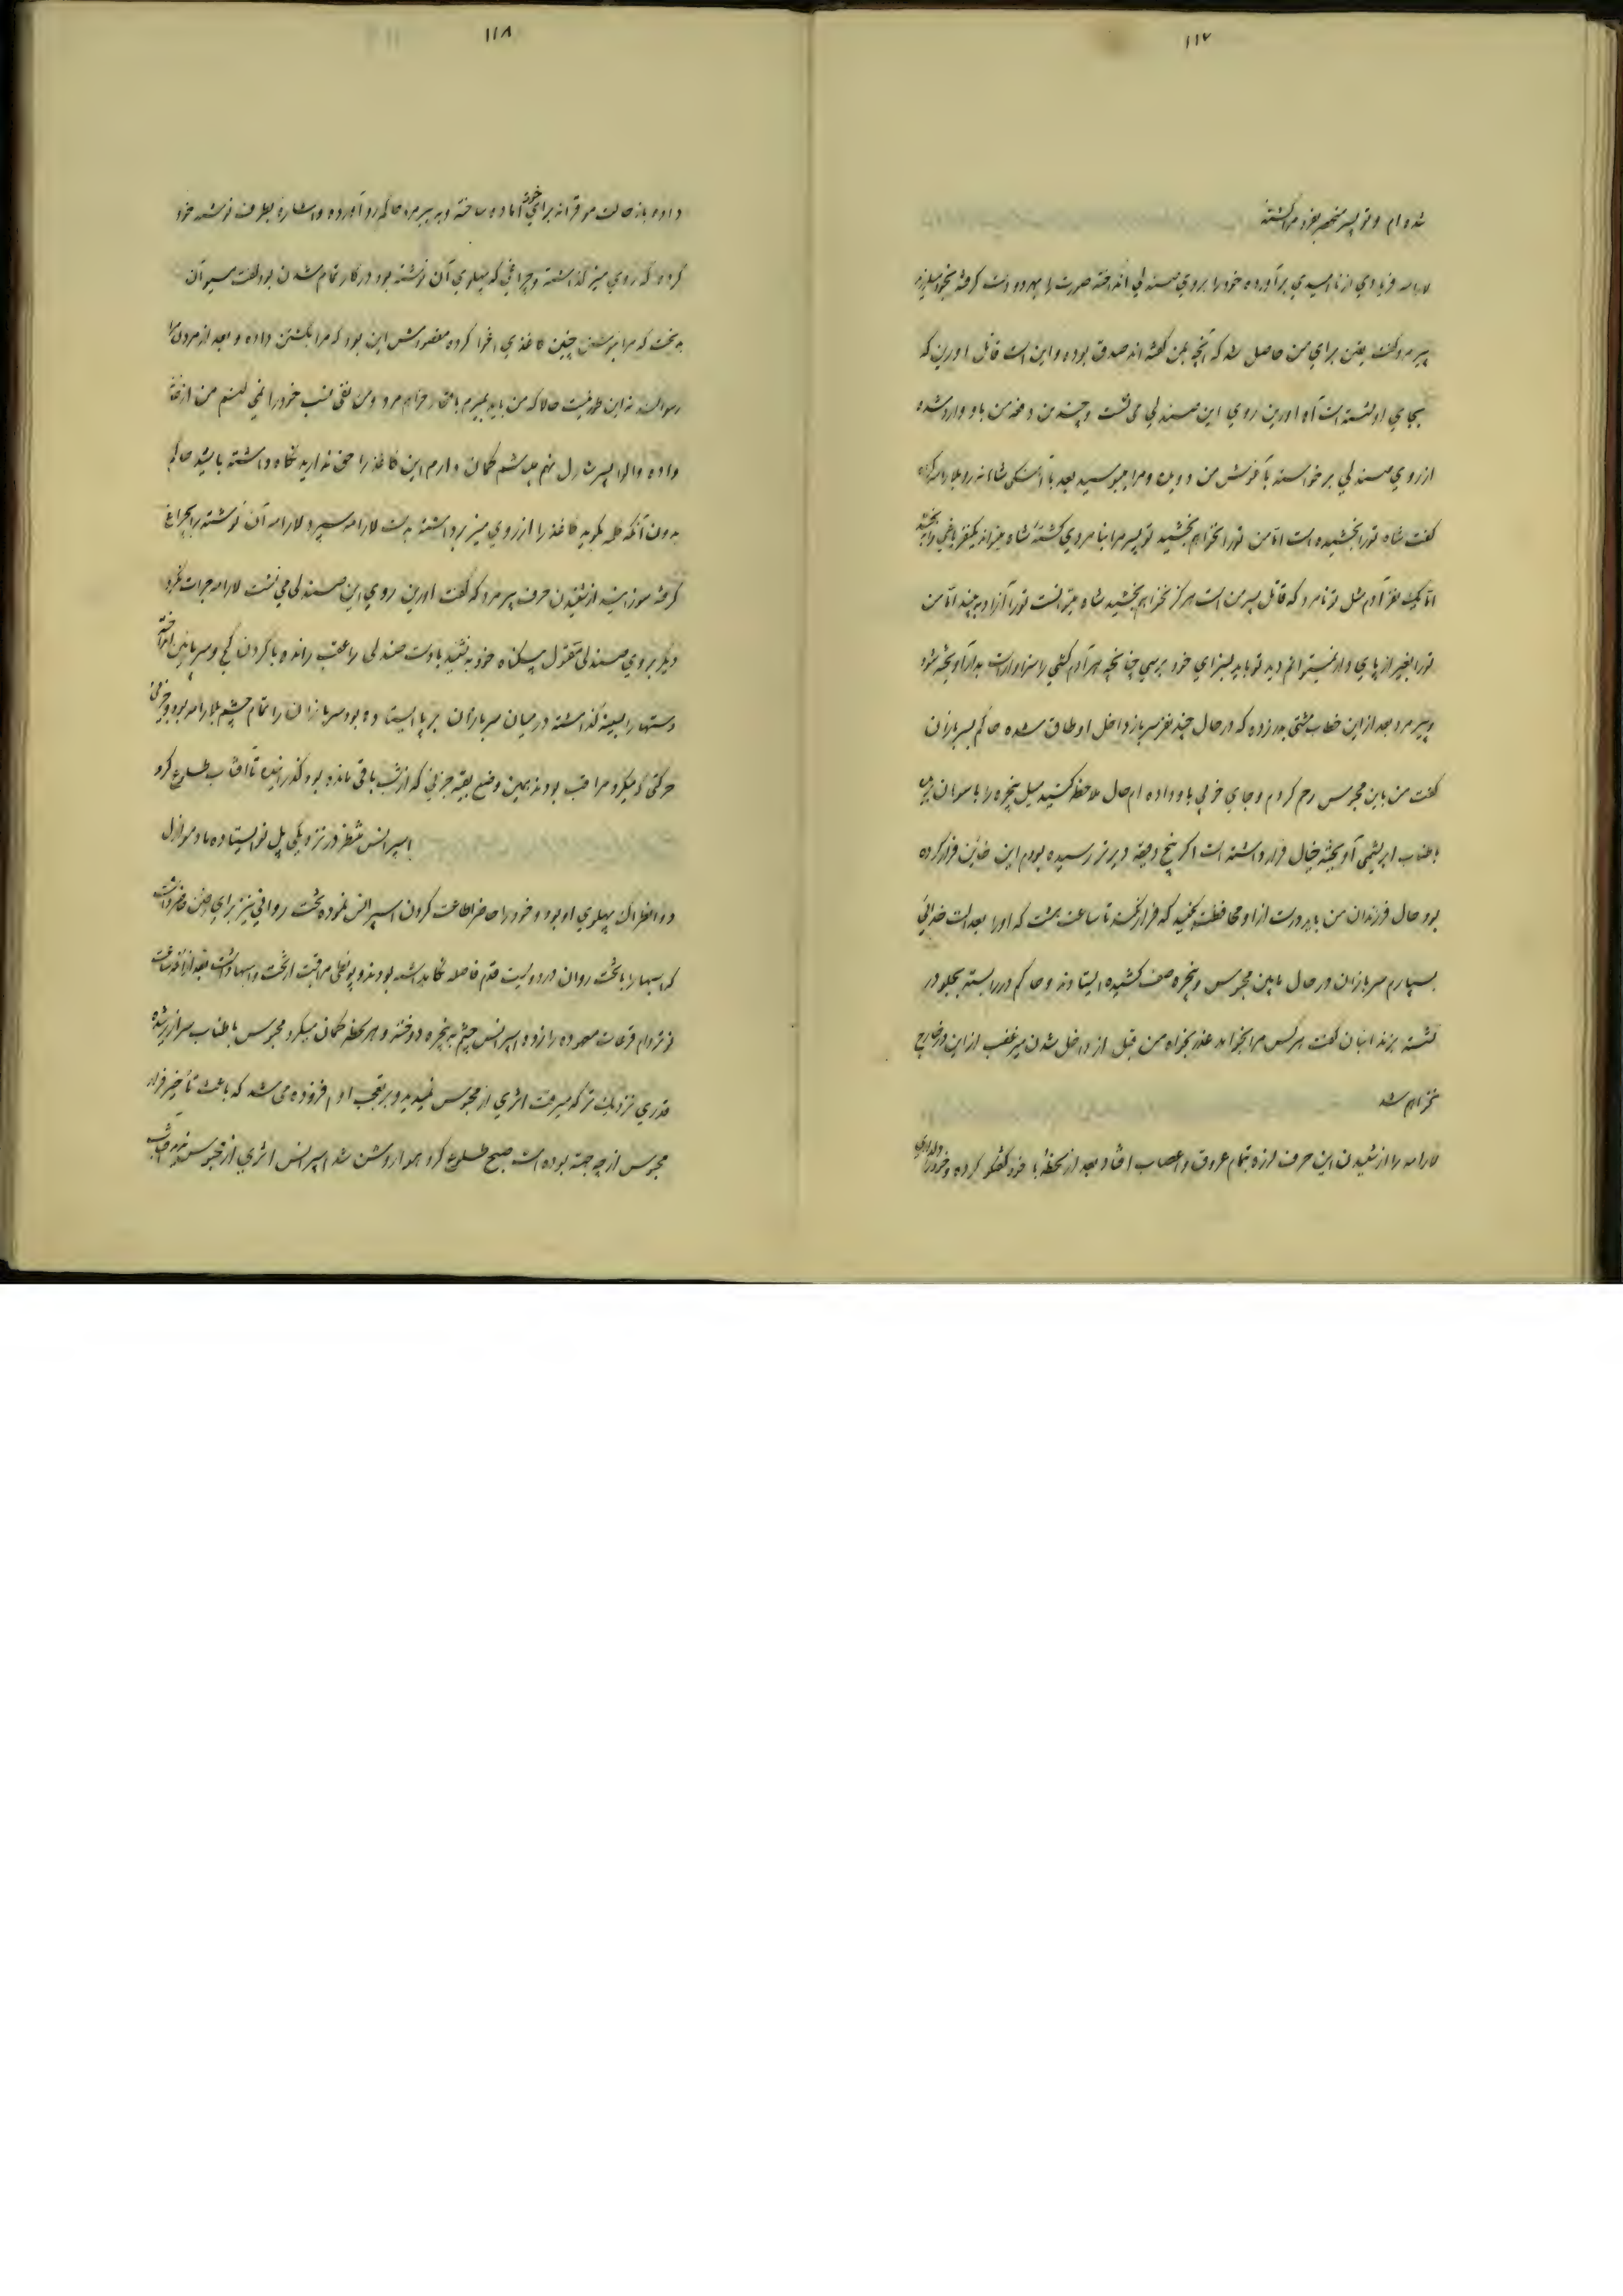 ۱۱۷
شده ام و تو پسر منحصر بفرد مرا کشته
لارامه فریادی از ناامیدی برآورده خود را بروی صندلی انداخته صورت را بهر دو دست گرفته بخود میلرزید
پیرمرد گفت یقین برای من حاصل شد که آنچه بمن گفته اند صدق بوده و این است قاتل اورین که
بجای او نشسته است آه اورین روی این صندلی می نشست و چندین دفعه من باو وارد شده
از روی صندلی برخواسته بآغوش من دوید و مرا میبوسید بعد با آهنگی شاهانه رو بلارامه کرده
گفت شاه تو را بخشیده است اما من تو را نخواهم بخشید تو پسر مرا بنامردی کشته شاه میتواند یکنفر یاغی را به بخشد
اما یک نفر آدم مثل تو نامرد که قاتل پسر من است هرگز نخواهم بخشید شاه میتوانست تو را آزاد به بیند اما من
تو را بغیر از پای دار نمیتوانم دید تو باید بسزای خود برسی چنانچه هر آدم کشی را سزاوار است بدار آویخته شود
پیرمرد بعد از این خطاب مشتی بدر زده که در حال چند نفر سرباز داخل اوطاق شده حاکم بسربازان
گفت من باین محبوس رحم کردم و جای خوبی باو داده ام حال ملاحظه کنید میل پنجره را با سوهان بریده
با طناب ابریشمی آویخته خیال فرار داشته است اگر پنج دقیقه دیرتر رسیده بودم این خائن فرار کرده
بود حال فرزندان من باید درست از او محافظت کنید که فرار نکند تا ساعت هشت که او را بعدالت خدائی
بسپارم سربازان در حال مابین محبوس و پنجره صف کشیده ایستادند و حاکم در را بسته بجلو در
نشسته بزندانبان گفت هر کس مرا بخواهد عذر بخواه من قبل از داخل شدن میر غضب از این در خارج
نخواهم شد
لارامه را از شنیدن این حرف لرزه بتمام عروق و اعصاب افتاد بعد از لحظهٔ با خود گفتگو کرده و خود را دلداری
۱۱۸
داده باز حالت موقرانه برای خود آماده ساخته و به پیرمرد حاکم رو آورده و اشاره بطرف نوشته خود
کرده که روی میز گذاشته و چراغی که پهلوی آن نوشته بود در کار تمام شدن بود گفت مسیو آن
بدبخت که مرا بنوشتن چنین کاغذی اغوا کرده مقصودش این بود که مرا بکشتن داده و بعد از مردن مرا
رسوا کند نه این طور نیست حالا که من باید بمیرم با افتخار خواهم مرد و من نفی نسب خود را نمی کنم من از خانواده
والوا پسر شارل نهم میباشم گمان دارم این کاغذ را حق ندارید نگاه داشته باشید حاکم
بدون آنکه کلمه بگوید کاغذ را از روی میز برداشته بدست لارامه سپرد لارامه آن نوشته را بچراغ
گرفته سوزانید از شنیدن حرف پیرمرد که گفت اورین روی این صندلی می نشست لارامه جرات نکرد
دیگر بروی صندلی مقتول بیگناه خود به نشیند با دست صندلی را عقب رانده با گردن کج و سر پائین انداخته
دستها را بسینه گذاشته در میان سربازان بر پا ایستاده بود سربازان را تمام چشم بلارامه بود و جزئی
حرکتی که میکرد مراقب بودند بهمین وضع بقیه جزئی که از شب باقی مانده بود گذرانیده تا آفتاب طلوع کرد
اسپرانس منتظر در نزدیکی پل نو ایستاده مادموازل
دو انطراک پهلوی او بود و خود را حاضر اطاعت کردن اسپرانس نموده تخت روانی نیز برای رفتن حاضر داشت
که اسبها را با تخت روان در دویست قدم فاصله نگاهداشته بودند و پونتی مراقبت از تخت و اسبها داشت بعد از آنکه ساعت
نوتردام قرعات معهوده را زد و اسپرانس چشم به پنجره دوخته و هر لحظه گمان میکرد محبوس با طناب سرازیر شده
قدری نزدیک تر که میرفت اثری از محبوس نمیدید و بر تعجب او هم افزوده می شد که باعث تأخیر فرار
محبوس از چه جهت بوده است صبح طلوع کرد هوا روشن شد اسپرانس اثری از محبوس ندید